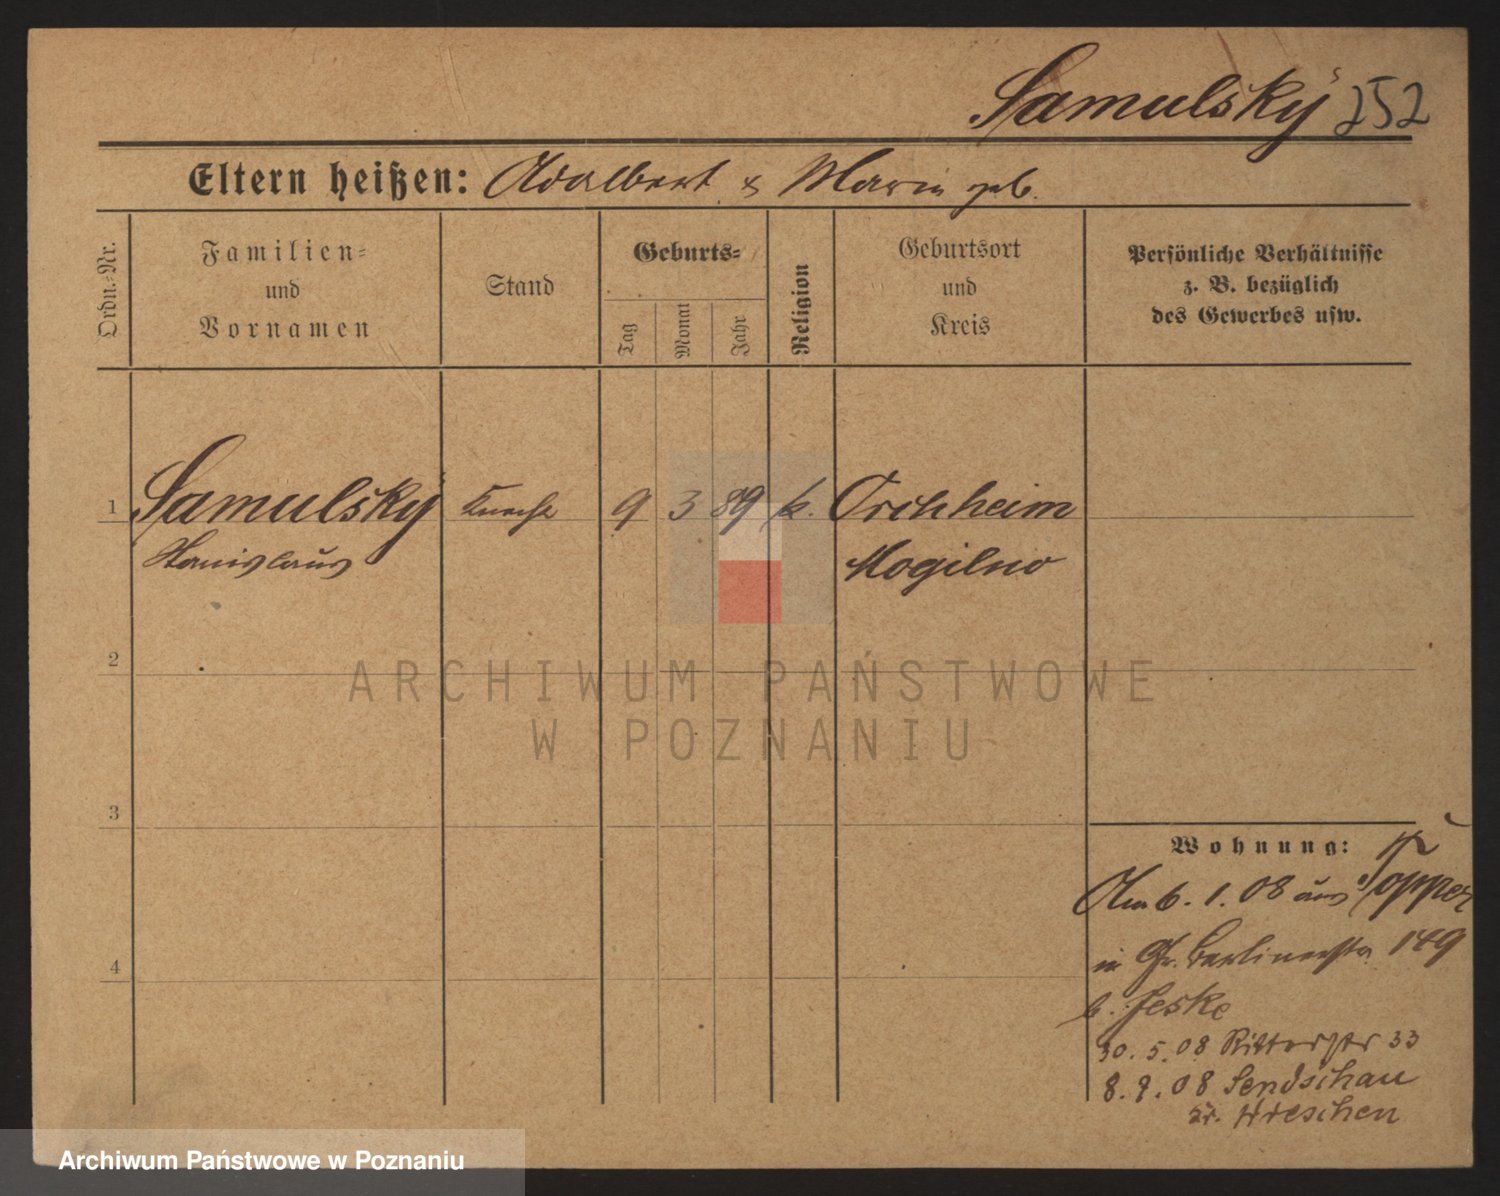 Samulsky 252
Eltern heißen: Adalbert & Marie geb.
Ordn.-Nr.
Familien-
und
Vornamen
Stand
Geburts-
Tag
Monat
Jahr
Religion
Geburtsort
und
Kreis
Persönliche Verhältnisse
z. B. bezüglich
des Gewerbes usw.
1 Samulsky Knecht 9 3 89 k. Orchheim
Stanislaus Mogilno
2
3
4
Wohnung:
Am 6. 1. 08 aus Topper
in Gr. Berlinerstr. 149
b. Jeske
30. 5. 08 Ritterstr 33
8. 9. 08 Sendschau
Kr. Wreschen
ARCHIWUM PAŃSTWOWE
W POZNANIU
Archiwum Państwowe w Poznaniu